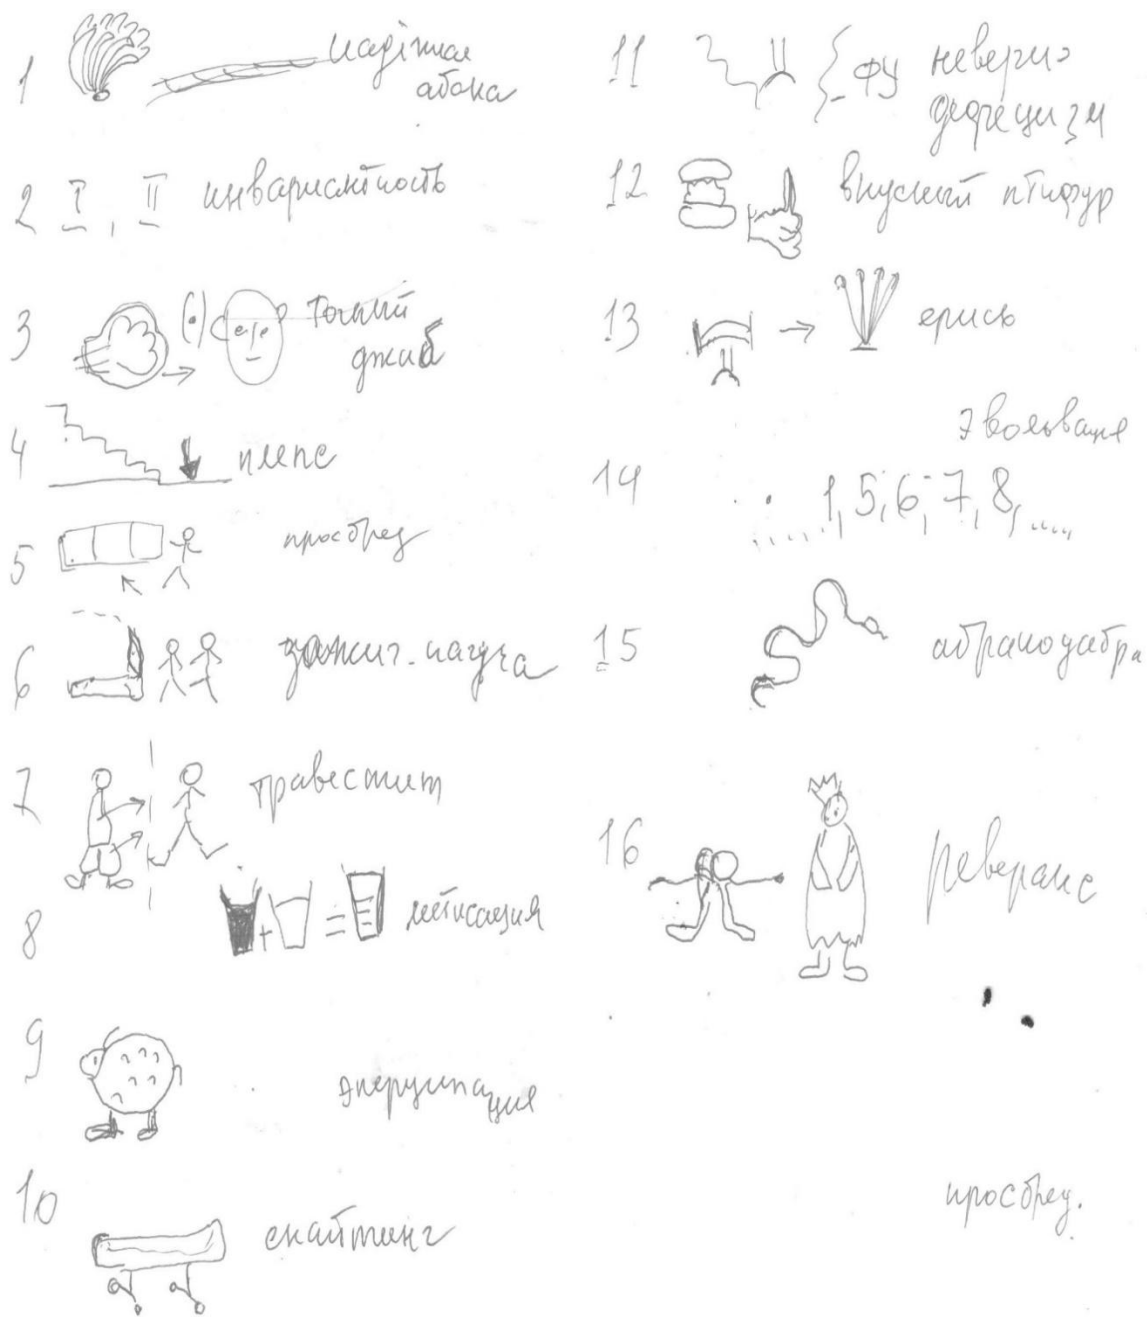 1
абака
2 I, II инвариантность
3 (•) Точный
джиб
4 плепс
5 просбред
6 зажиг. пагуча
7 травестит
8 + = метисация
9
10 скайтинг
11 -ФУ неверио
дефецизм
12 вкусный птифур
13 ерись
14 1, 5, 6, 7, 8, ....
15 абракодабра
16 реверанс
просбред.